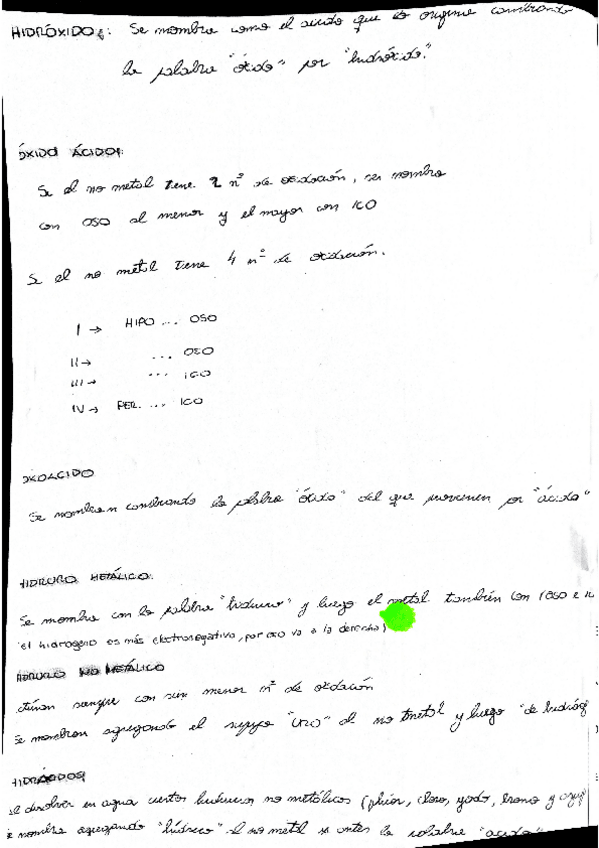 HIDRÓXIDOS: Se nombra como el acido que lo origina cambiando
la palabra "óxido" por "hidróxido."
ÓXIDOS ÁCIDOS:
Si el no metal tiene 2 nº de oxidación, se nombra
con OSO al menor y el mayor con ICO
Si el no metal tiene 4 nº de oxidación.
I → HIPO ... OSO
II → ... OSO
III → ... ICO
IV → PER. ... ICO
OXOÁCIDO
Se nombran cambiando la palabra "óxido" del que provienen por "ácido"
HIDRURO METÁLICO
Se nombra con la palabra "hidruro" y luego el metal también con (oso e
el hidrogeno es más electronegativo, por eso va a la derecha)
HIDRURO NO METÁLICO
siempre con su menor nº de oxidación
Se nombran agregando el "URO" al no metal y luego "de
HIDRÁCIDOS
al disolver en agua ciertos hidruros no metálicos (flúor, cloro, yodo, bromo y
se nombra agregando "hídrico" al no metal y antes la palabra "acido"